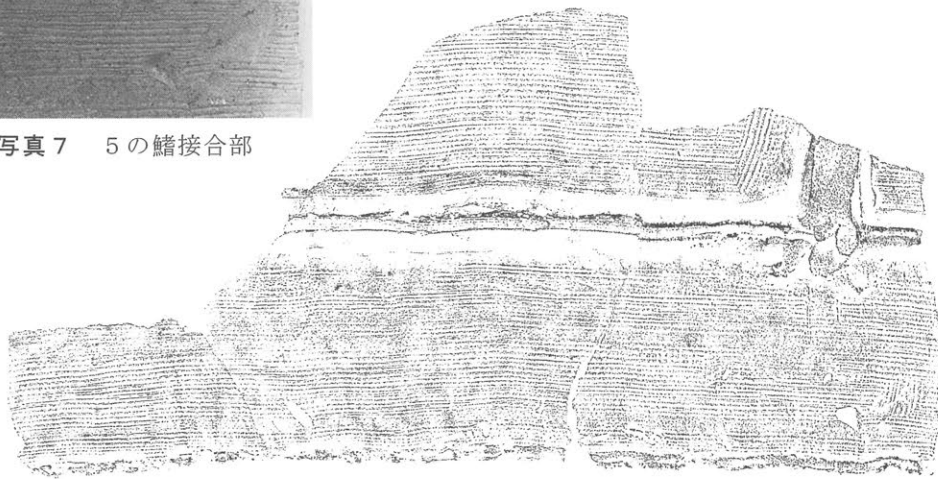 写真7　5の鰭接合部